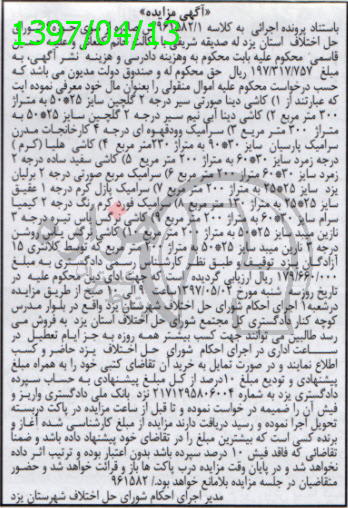 «آگهی مزایده»
1397/04/13
باستناد پرونده اجرائی به کلاسه ۹۶۱۵۸۲/۱ صادره از سوی شورای
حل اختلاف استان یزد له صدیقه شریفی با وکالت آقای لقمانی وعلیه
قاسمی محکوم علیه بابت محکوم به وهزینه دادرسی و هزینه نشر آگهی، به
مبلغ ۱۹۷/۳۱۷/۷۵۷ ریال حق محکوم له و صندوق دولت مدیون می باشد که
حسب درخواست محکوم علیه اموال منقولی را بعنوان مال خود معرفی نموده ایت
که عبارتند از ۱) کاشی دینا صورتی سیر درجه ۲ گلچین سایز ۲۵*۵۰ به متراژ
۳۰۰ متر مربع ۲) کاشی دینا آبی نیم سیر درجه ۲ گلچین سایز ۲۵*۵۰ به
متراژ ۳۰۰ متر مربع ۳) سرامیک وودقهوه ای درجه ۴ کارخانجات مدرن
سرامیک پارسیان سایز ۳۰*۹۰ به متراژ ۲۳۰متر مربع ۴) کاشی هلیا (کرم)
درجه زمرد سایز ۳۰*۶۰ به متراژ ۲۰۰ متر مربع ۵) کاشی سفید ساده درجه ۲
زمرد سایز ۳۰*۶۰ به متراژ ۲۰۰ متر مربع ۶) سرامیک صورتی درجه ۲ برلیان
یزد سایز ۲۵*۲۵ به متراژ ۲۰۰ متر مربع ۷) سرامیک پازل کرم درجه ۱ عقیق
سایز ۲۵*۲۵ به متراژ متر مربع ۸) سرامیک فورو کرم رنگ درجه ۲ کیمیا
سرام سایز ۳۰*۶۰ به متراژ ۲۰۰ متر مربع تیره درجه ۳
نارین میبد سایز ۲۵*۵۰ به متراژ ۲۰۰ متر مربع ۱۰) کاشی یاس روشن
درجه ۳ نارین میبد سایز ۲۵*۵۰ به متراژ ۲۰۰ متر مربع که توسط کلانتری ۱۵
آزادگان یزد توقیف و طبق نظر کارشناس رسمی دادگستری به مبلغ
۱۷۹/۶۶۰/۰۰۰ ریال ارزیابی گردیده است از جهت ادای دین محکوم علیه در
تاریخ روز شنبه مورخ ۱۳۹۷/۰۵/۰۶ ساعت ۹ الی ۱۰ صبح از طریق مزایده
درشعبه ۹ اجرای احکام شورای حل اختلاف شهرستان یزد واقع در بلوار مدرس
کوچه کنار دادگستری کل مجتمع شورای حل اختلاف استان یزد به فروش می
رسد طالبین می توانند جهت کسب بیشتر همه روزه به جز ایام تعطیل در
ساعت اداری در اجرای احکام شورای حل اختلاف یزد حاضر و کسب
اطلاع نمایند و در صورت تمایل به خرید آن تقاضای کتبی خود را به همراه مبلغ
پیشنهادی و تودیع مبلغ ۱۰درصد از کل مبلغ پیشنهادی به حساب سپرده
دادگستری یزد به شماره ۲۱۷۱۲۹۵۸۰۶۰۰۴ نزد بانک ملی دادگستری واریز و
فیش آن را ضمیمه در خواست نموده و تا قبل از ساعت مزایده در پاکت دربسته
تحویل اجرا نموده و رسید دریافت دارند مزایده از مبلغ کارشناسی شده آغاز و
برنده کسی است که بیشترین مبلغ را در تقاضای خود پیشنهاد داده باشد و ضمناً
تقاضائی که فاقد فیش ۱۰ درصد سپرده باشد بدون اعتبار بوده و ترتیب اثر داده
نخواهد شد و در پایان وقت مزایده درب پاکت ها باز و قرائت خواهد شد و حضور
متقاضیان در جلسه مزایده بلامانع خواهد بود/ ۹۶۱۵۸۲
مدیر اجرای احکام شورای حل اختلاف شهرستان یزد